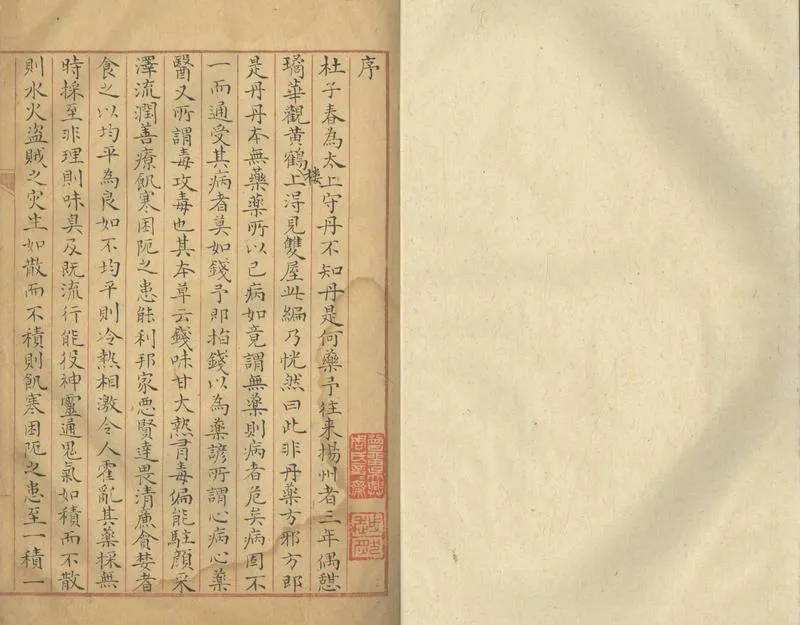 序
杜子春為太上守丹不知丹是何藥予往来揚州者三年偶憇
璚華觀黄鶴楼上淂見雙屋此編乃恍然曰此非丹藥方邪方即
是丹丹本無藥藥所以已病如竟謂無藥則病者危矣病固不
一而通受其病者莫如錢予即拍錢以為藥諺所謂心病心藥
醫又所謂毒攻毒也其本草云錢味甘大熱有毒偏能駐顔采
澤流潤善療飢寒困阨之患能利邦家悪賢達畏清亷貪婪者
食之以均平為良如不均平則冷熱相激令人霍亂其藥採無
時採至非理則味臭及既流行能役神靈通鬼氣如積而不散
則水火盗賊之灾生如散而不積則飢寒困阨之患至一積一
曾留吳興
周氏言言齋